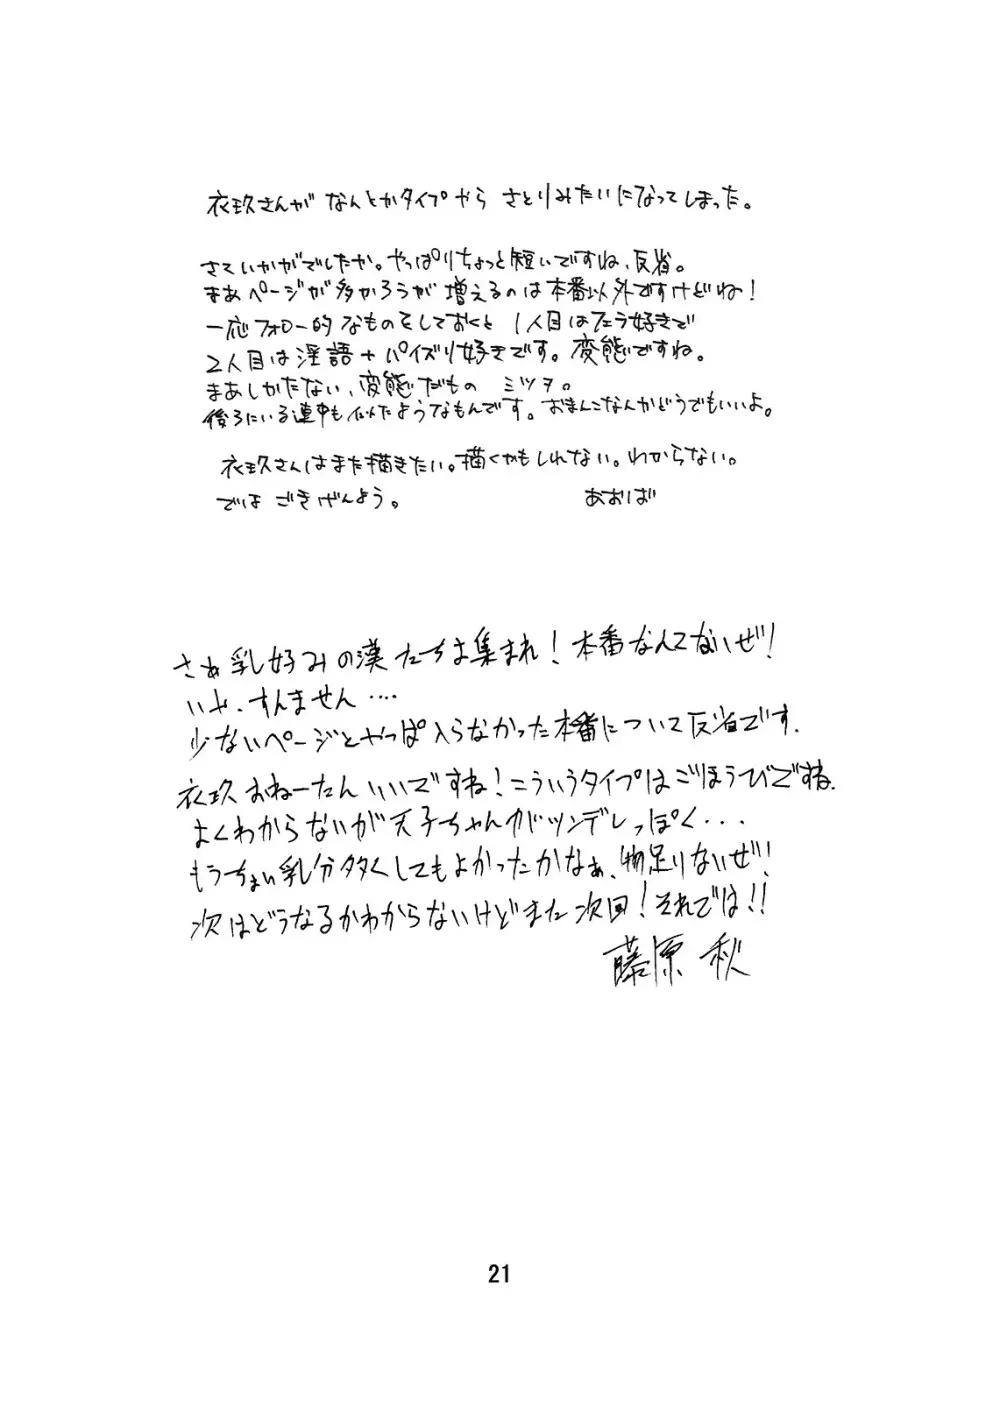 衣玖さんが なんとかタイプやら さとりみたいになってしまった。
さていかがでしたか。やっぱりちょっと短いですね、反省。
まあページが多かろうが増えるのは本番以外ですけどね!
一応フォロー的なものをしておくと 1人目はフェラ好きで
2人目は淫語+パイズリ好きです。変態ですね。
まあしかたない、変態だもの ミツヲ。
後ろにいる連中も似たようなもんです。おまんこなんかどうでもいいよ。
衣玖さんはまた描きたい。描くかもしれない。わからない。
では ごきげんよう。 あおば
さぁ乳好みの漢たちよ集まれ!本番なんてないぜ!
いや、すんません‥‥
少ないページとやっぱ入らなかった本番について反省です.
衣玖おねーたんいいですね!こういうタイプはごほうびですね.
よくわからないが天子ちゃんがツンデレっぽく・・・
もうちょい乳分多くしてもよかったかなぁ、物足りないぜ!
次はどうなるかわからないけどまた次回!それでは!!
藤原 秋
21